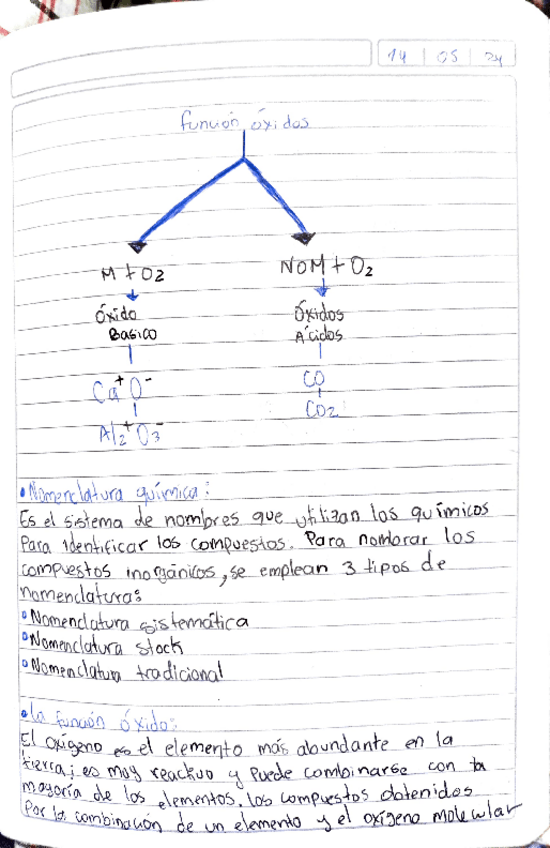 14 | 05 | 24
función óxidos
M + O2
NOM + O2
Óxido
Basico
Óxidos
Ácidos
Ca⁺O⁻
Al2⁺O3⁻
CO
CO2
• Nomenclatura química:
Es el sistema de nombres que utilizan los químicos
Para identificar los compuestos. Para nombrar los
compuestos inorgánicos, se emplean 3 tipos de
nomenclatura:
• Nomenclatura sistemática
• Nomenclatura stock
• Nomenclatura tradicional
• la función óxido:
El oxígeno es el elemento más abundante en la
tierra; es muy reactivo y puede combinarse con la
mayoría de los elementos. los compuestos obtenidos
Por la combinación de un elemento y el oxígeno molecular